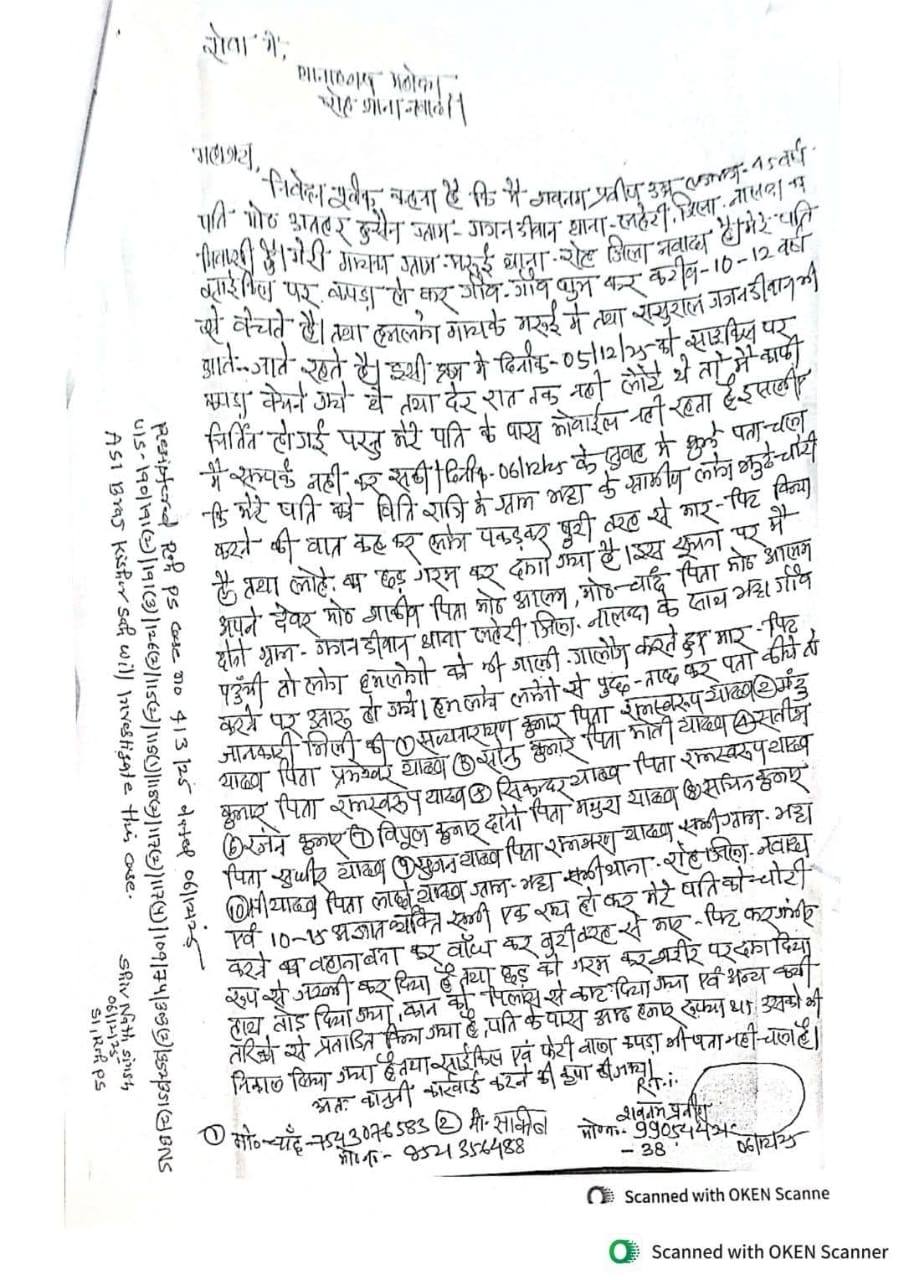 सेवा में,
थानाध्यक्ष महोदय
रोह थाना नवादा।
महाशय,
निवेदन पूर्वक कहना है कि मैं शबनम प्रवीण उम्र लगभग-45 वर्ष
पति मो० अतहर हुसैन ग्राम- गगनडीवान थाना-लहेरी, जिला- नालन्दा
निवासी हूँ। मेरी मायका ग्राम-मरूई थाना- रोह जिला नवादा है। मेरे पति
साईकिल पर कपड़ा ले कर गाँव-गाँव घुम कर करीब-10-12 वर्षों
से बेचते है। तथा हमलोग मायके मरूई में तथा ससुराल गगनडीवान भी
आते-जाते रहते है। इसी क्रम में दिनांक-05/12/25 को साइकिल पर
कपड़ा बेचने गये थे तथा देर रात तक नही लौटे थे तो मैं काफी
चिंतित हो गई परंतु मेरे पति के पास मोबाईल नही रहता है इसलीए
मैं सम्पर्क नही कर सकी। दिनांक-06/12/25 के सुबह में मुझे पता चला
कि मेरे पति को बिति रात्रि में ग्राम भट्टा के ग्रामीण लोग झुठे चोरी
करने की बात कह कर लोग पकड़कर बुरी तरह से मार-पिट किया
है तथा लोहे का छड़ गरम कर दागा गया है। इस सुचना पर मैं
अपने देवर मो० शाकीब पिता मो० आलम, मो०-चाँद पिता मो० आलम
दोनो ग्राम- गगनडीवान थाना लहेरी जिला- नालन्दा के साथ भट्टा गाँव
पहुँची तो लोग हमलोगो को भी गाली-गलौज करते हुए मार-पिट
करने पर उतारू हो गये। हमलोग लोगो से पुछ-ताछ कर पता किये तो
जानकारी मिली की ① सत्यनारायण कुमार पिता रामस्वरूप यादव ② मंटु
यादव पिता प्रमेश्वर यादव ③ सोनु कुमार पिता मोती यादव ④ सतीश
कुमार पिता रामस्वरूप यादव ⑤ सिकन्दर यादव पिता रामस्वरूप यादव
⑥ रंजन कुमार ⑦ विपुल कुमार दोनो पिता मथुरा यादव ⑧ सचिन कुमार
पिता सुधीर यादव ⑨ सुगन यादव पिता रामशरण यादव सभी ग्राम- भट्टा
⑩ यादव पिता यादव ग्राम-भट्टा सभी थाना- रोह जिला- नवादा
एवं 10-15 अज्ञात व्यक्ति सभी एक साथ हो कर मेरे पति को चोरी
करने का बहाना बना कर बाँध कर बुरी तरह से मार-पिट कर गंभीर
रूप से जख्मी कर दिया है तथा छड़ को गरम कर शरीर पर दाग दिया
हाथ तोड़ दिया गया, कान को पिलास से काट दिया गया एवं अन्य कयी
तरिको से प्रताड़ित किया गया है, पति के पास आठ हजार रूपया था उसको भी
निकाल लिया गया है तथा साईकिल एवं फेरी वाला कपड़ा भी पता नही चला है।
अतः कानुनी कारवाई करने की कृपा की जाय।
R.T.I.
शबनम प्रवीण
मो०न०- 99054424
- 38
06/12/25
① मो०-चाँद-7543076583 ② मो- साकीब
मो०न०- 8521356488
Registered Roh PS case no 413/25 dated 06/12/25
U/S-190/191(2)/191(3)/126(2)/115(2)/117(2)/117(4)/109/74 BNS
ASI Braj Kishor Sah will investigate this case.
Shiv Nath Singh
06/12/25
SI Roh PS
Scanned with OKEN Scanne
Scanned with OKEN Scanner